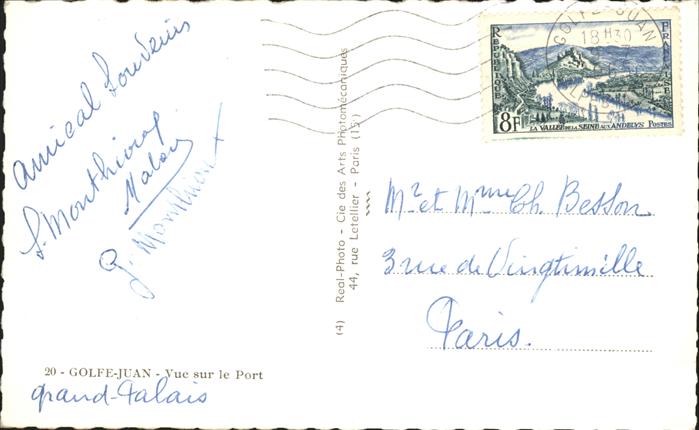 amical Souvenir
S. Monthioux
Malou
G. Monthioux
20 - GOLFE-JUAN - Vue sur le Port
grand-Palais
(4) Real-Photo - Cie des Arts Photomécaniques
44, rue Letellier - Paris (15e)
GOLFE-JUAN
18 H30
REPUBLIQUE
FRANÇAISE
8F
LA VALLÉE DE LA SEINE AUX ANDELYS POSTES
Mr et Mme Ch. Besson
3 rue de Vingtimille
Paris.